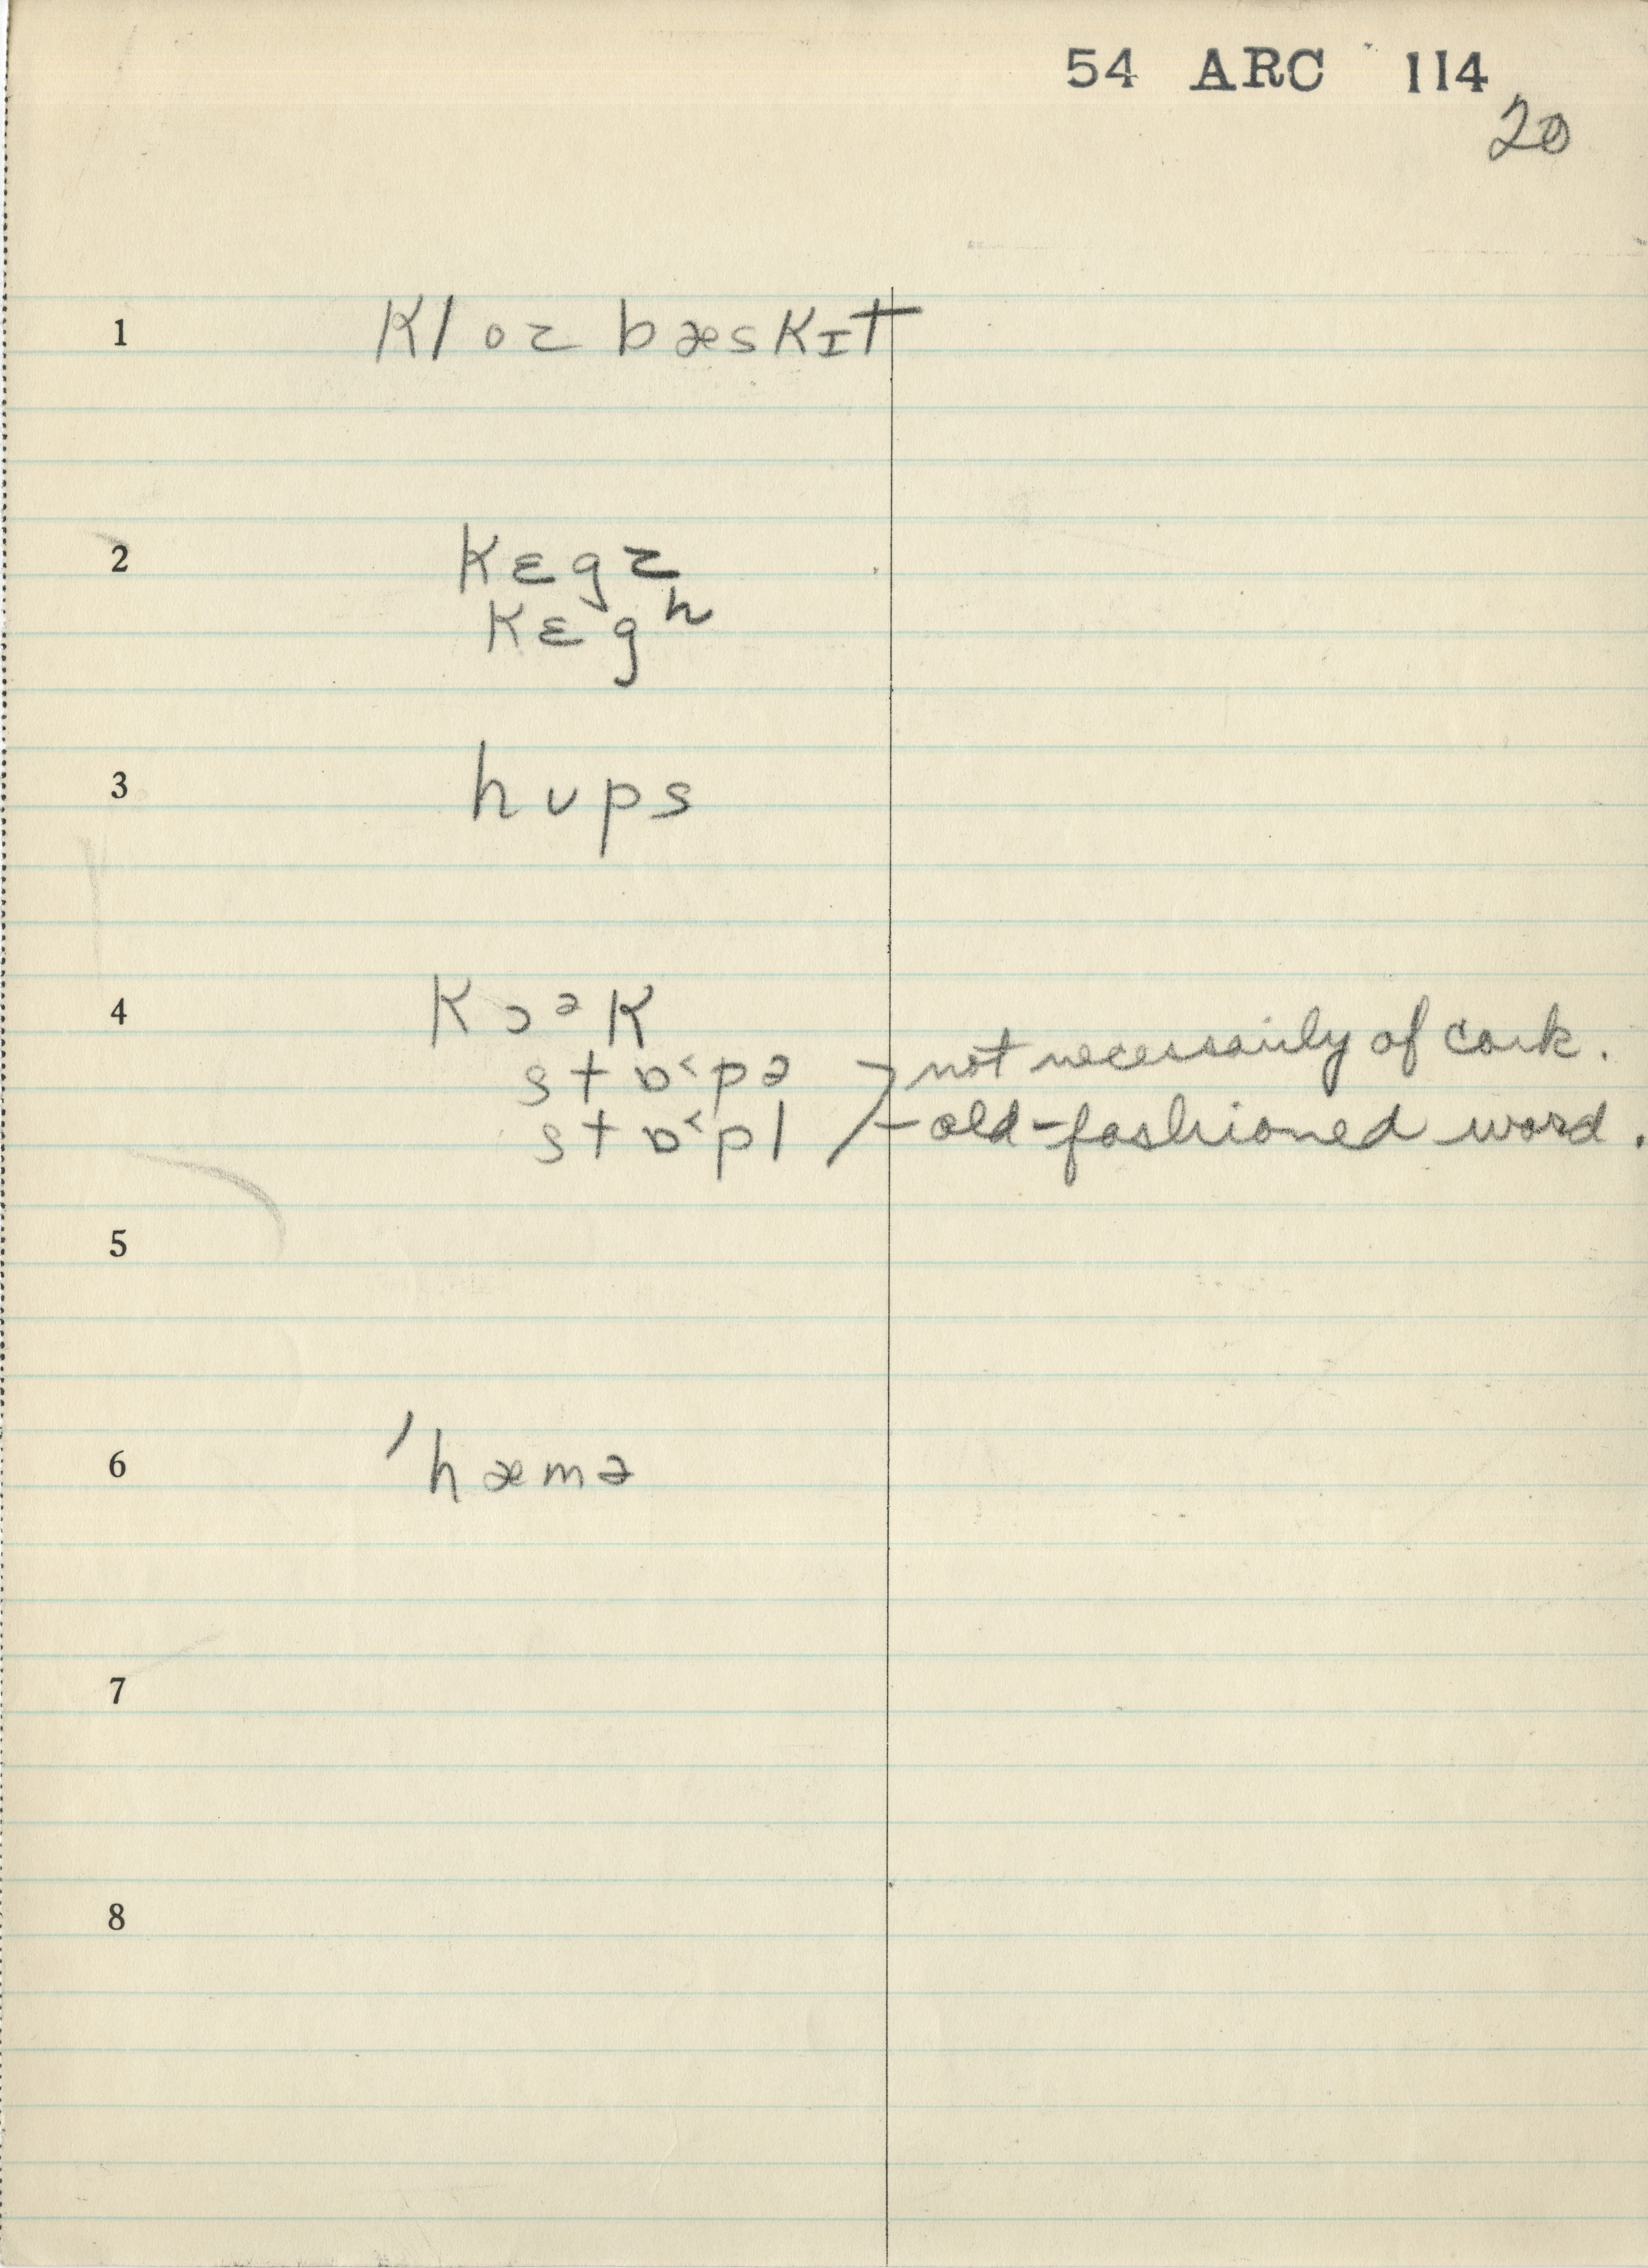 54 ARC 114
20
1 kloz bæskɪt
2 kɛgz
kɛgʰ
3 hʊps
4 kɔᵊk
stɒ˂pə not necessarily of cork.
stɒ˂pl - old-fashioned word.
5
6 ˈhæmə
7
8